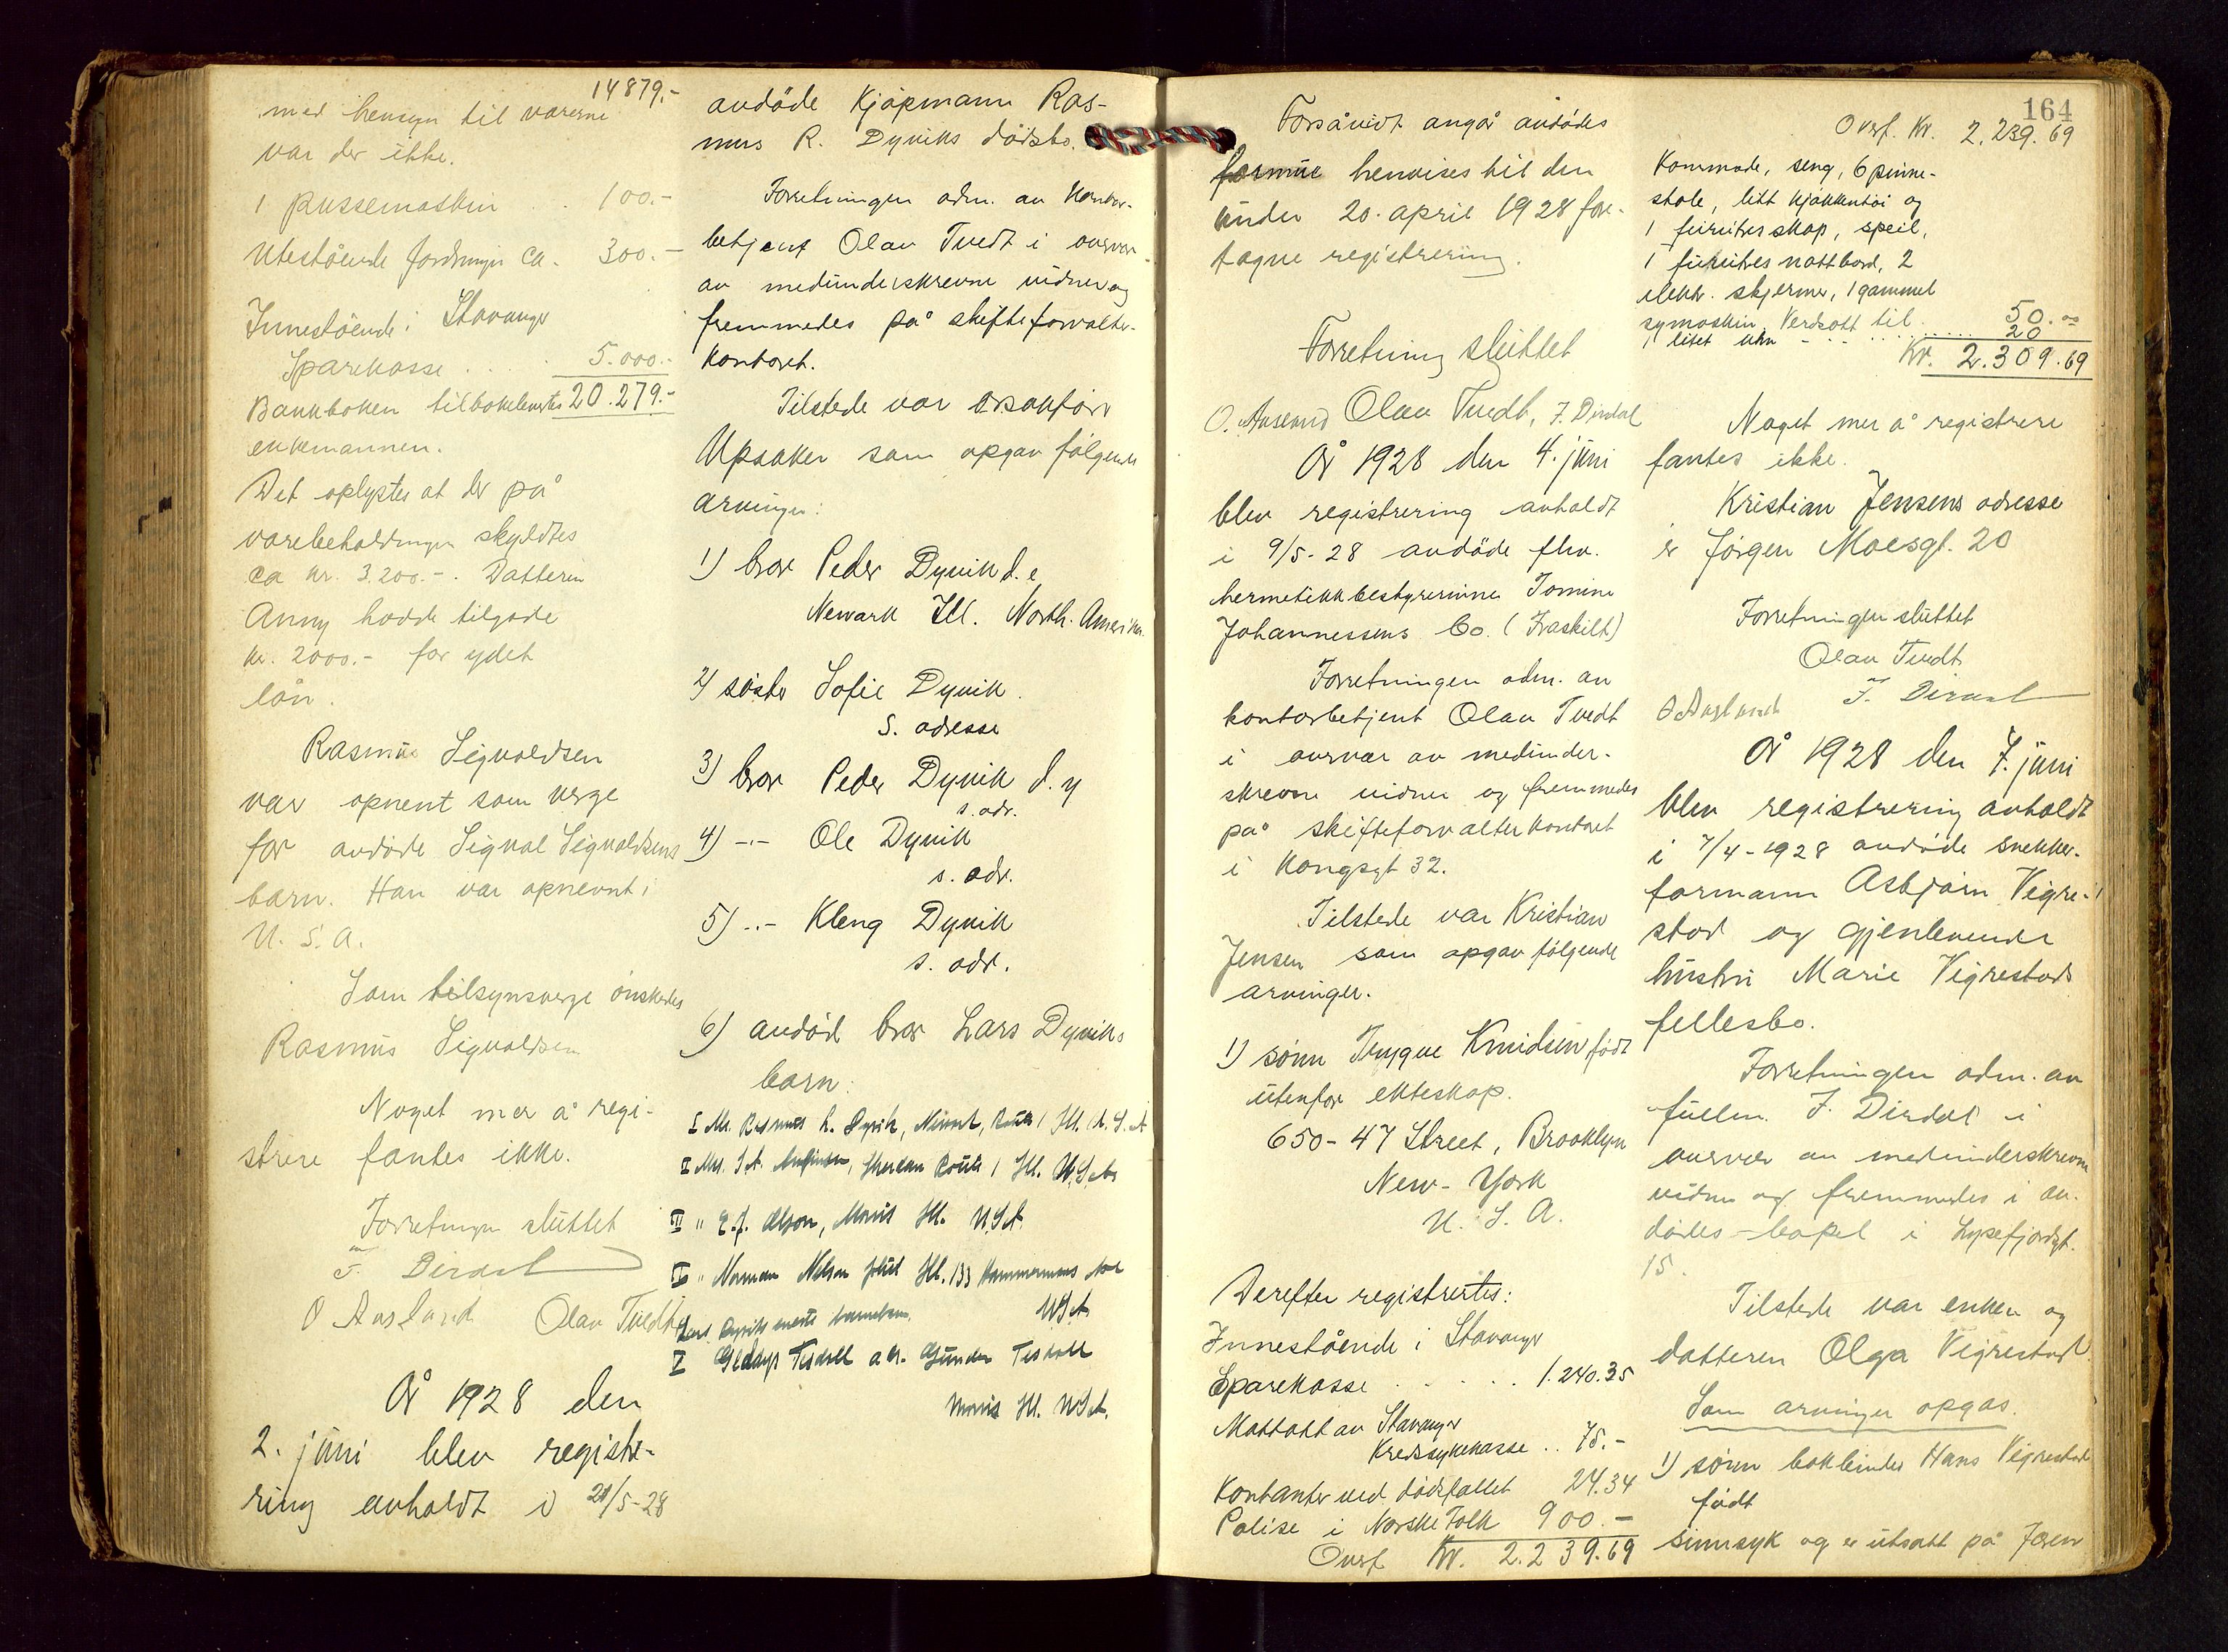 14879.-
med hensyn til varerne
var der ikke.
1 pussemaskin . . 100.-
Utestående fordringer ca. 300.-
Innestående i Stavanger
Sparekasse . . . 5.000.-
20.279.-
Bankboken tilbakelevertes
enkemannen.
Det oplystes at der på
varebeholdningen skyldtes
ca kr. 3.200.-. Datteren
Anny hadde tilgode
kr. 2000.- for ydet
lån.
Rasmus Sigvaldsen
var opnevnt som verge
for avdøde Sigval Sigvaldsens
barn. Han var opnevnt i
U. S. A.
Som tilsynsverge ønskedes
Rasmus Sigvaldsen
Noget mer å regi-
strere fantes ikke.
Forretningen sluttet
F. Dirdal
O Aasland Olav Tvedt
År 1928 den
2. juni blev registre-
ring avholdt i 21/5-28
avdøde Kjøpmann Ras-
mus R. Dyviks dødsbo.
Forretningen adm. av Kontor-
betjent Olav Tvedt i overvær
av medunderskrevne vidner og
fremmedes på skifteforvalter-
kontoret.
Tilstede var orsakfører
Upsaker som opgav følgende
arvinger:
1) bror Peder Dyvik d. e
Newark Ill. North. Amerika
2) søster Sofie Dyvik.
S. adresse
3) bror Peder Dyvik d. y
s. adr.
4) -.- Ole Dyvik
s. adr.
5) -.- Kleng Dyvik
s. adr.
6) avdød bror Lars Dyviks
barn:
I Mr. Rasmus L. Dyvik, Newark, Route 1 Ill. U. S. A
II Mrs. S.A. Sheridan Route 1 Ill. U.S.A
III " E.J. Olson, Morris Ill. U.S.A.
IV " Norman Nelson Joliet Ill. 133
U.S.A
Lars Dyviks barnebarn
V Gladys Tesdall adr. Gunder Tesdall
Morris Ill. U.S.A.
Forsåvidt angår avdødes
formue henvises til den
under 20. april 1928 fore-
tagne registrering.
Forretning sluttet
O. Aasland Olav Tvedt, F. Dirdal
År 1928 den 4. juni
blev registrering avholdt
i 9/5-28 avdøde fhv.
hermetikkbestyrerinne Tomine
Johannessens bo. (Fraskilt)
Forretningen adm. av
kontorbetjent Olav Tvedt
i overvær av medunder-
skrevne vidner og fremmedes
på skifteforvalterkontoret
i Kongsgt 32.
Tilstede var Kristian
Jensen som opgav følgende
arvinger.
1) sønn Trygve Knudsen født
utenfor ekteskap.
650-47 Street, Brooklyn
New-York
U. S. A.
Derefter registrertes:
Innestående i Stavanger
Sparekasse . . . . . 1.240.35
Mottatt av Stavanger
Kredssykekasse .. 75.-
Kontanter ved dødsfallet 24.34
Polise i Norske Folk 900.-
Overf Kr. 2.239.69
164
Overf. Kr. 2.239.69
Kommode, seng, 6 pinne-
stole, litt kjøkkentøi og
1 furutres skap, speil,
1 furutres nattbord, 2
elektr. skjermer, 1 gammel
symaskin. Verdsatt til 50.00
1 litet uhr - . . . . 20
Kr. 2.309.69
Noget mer å registrere
fantes ikke.
Kristian Jensens adresse
er Jørgen Moesgt. 20
Forretningen sluttet
Olav Tvedt
O Aasland F. Dirdal
År 1928 den 7. juni
blev registrering avholdt
i 7/4-1928 avdøde snekker-
formann Asbjørn Vigre-
stad og gjenlevende
hustru Marie Vigrestads
fellesbo.
Forretningen adm. av
fullm. F. Dirdal i
overvær av medunderskrevne
vidner og fremmedes i av-
dødes bopel i Lysefjordgt.
15.
Tilstede var enken og
datteren Olga Vigrestad.
Som arvinger opgas.
1) sønn bokbinder Hans Vigrestad
født
sinnsyk og er utsatt på Jæren